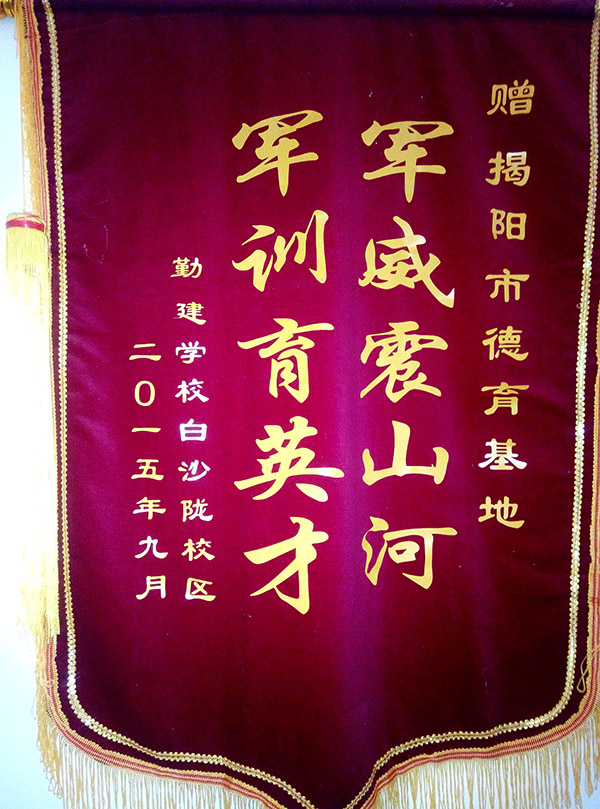 赠揭阳市德育基地
军威震山河
军训育英才
勤建学校白沙陇校区
二〇一五年九月